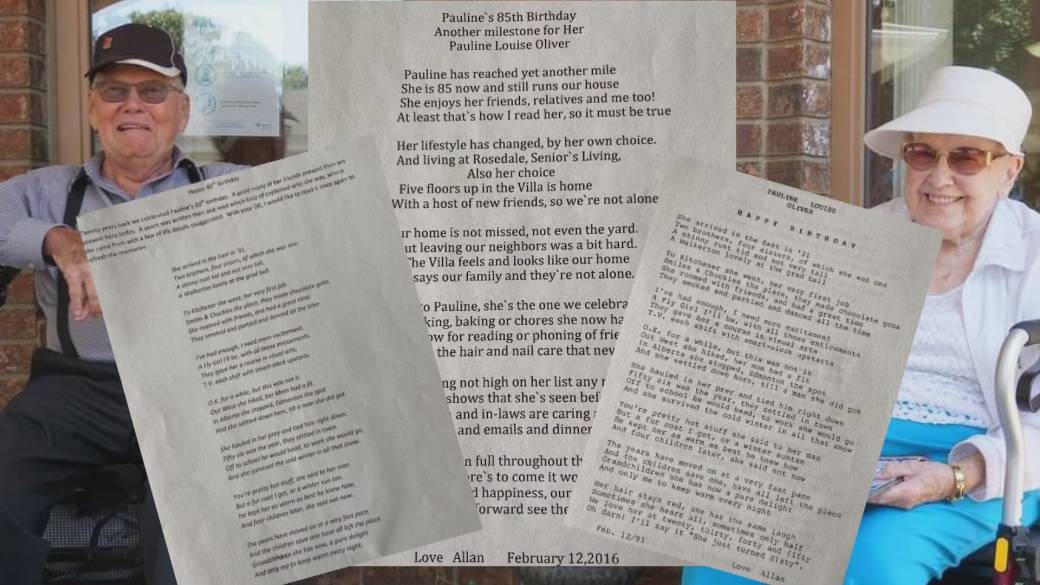 Pauline`s 85th Birthday
Another milestone for Her
Pauline Louise Oliver
Pauline has reached yet another mile
She is 85 now and still runs our house
She enjoys her friends, relatives and me too!
At least that`s how I read her, so it must be true
Her lifestyle has changed, by her own choice.
And living at Rosedale, Senior`s Living,
Also her choice
Five floors up in the Villa is home
With a host of new friends, so we`re not alone
ur home is not missed, not even the yard.
ut leaving our neighbors was a bit hard.
he Villa feels and looks like our home
says our family and they`re not alone.
to Pauline, she`s the one we celebra
king, baking or chores she now ha
ow for reading or phoning of frie
the hair and nail care that nev
ng not high on her list any
shows that she`s seen bef
and in-laws are caring
and emails and dinner
n full throughout th
re`s to come it wo
d happiness, our
forward see the
Love Allan February 12,2016
Happy 80th Birthday
Twenty years back we celebrated Pauline's 60th birthday. A good many of her friends present then are
present here today. A poem was written then and read which kind of explained who she was, where
she came from with a few of life details exaggerated. With your OK, I would like to read it once again to
refresh the memories.
She arrived in the East in '31,
Two brothers, four sisters, of which she was one
A skinny runt kid and not very tall,
A Walkerton lovely at the grad ball.
To Kitchener she went, her very first job.
Smiles & Chuckles the place, they made chocolate gobs
She roomed with friends, and had a great time,
They smoked and partied and danced all the time
I've had enough, I need more excitement.
A Fly Girl I'll be, with all those enticements.
They gave her a course in visual arts,
T.V. each shift with smart-aleck upstarts.
O.K. for a while, but this was not it.
Out West she hiked, her Mom had a fit.
In Alberta she stopped, Edmonton the spot
And she settled down here, till a man she did got.
She hauled in her prey and tied him right down,
Fifty-six was the year, they settled in town
Off to school he would head, to work she would go,
And she survived the cold winter in all that snow.
You're pretty hot stuff, she said to her man
But a fur coat I get, or a winter sun tan.
He kept her as warm as best he knew how,
And four children later, she said not now.
The years have moved on at a very fast pace,
And the children save one have all left the place.
Grandchildren she has now, a pure delight
And only me to keep warm every night.
PAULINE LOUISE
OLIVER
HAPPY BIRTHDAY
She arrived in the East in '31
Two brothers, four sisters, of which she was one
A skinny runt kid and not very tall
A Walkerton lovely at the grad ball
To Kitchener she went, her very first job
Smiles & Chuckles the place, they made chocolate gobs
She roomed with friends, and had a great time
They smoked and partied and danced all the time
I've had enough, I need more excitement
A Fly Girl I'll be, with all those enticements
They gave her a course in visual arts
T.V. each shift with smart-aleck upstarts
O.K. for a while, but this was not it
Out West she hiked, her mom had a fit
In Alberta she stopped, Edmonton the spot
And she settled down here, till a man she did got
She hauled in her prey and tied him right down
Fifty six was the year, they settled in town
Off to school he would head, to work she would go
And she survived the cold winter in all that snow
You're pretty hot stuff she said to her man
But a fur coat I get, or a winter suntan
He kept her as warm as best he knew how
And four children later, she said not now
The years have moved on at a very fast pace
And the children save one, have all left the place
Grandchildren she has now a pure delight
And only me to keep warm every night
Her hair stays red, she has the same laugh
Sometimes she hears all, sometimes only half
We love her at twenty, thirty, forty and fifty
Oh darn! I'll say it "She just turned Sixty".
Feb. 12/91
Love Allan